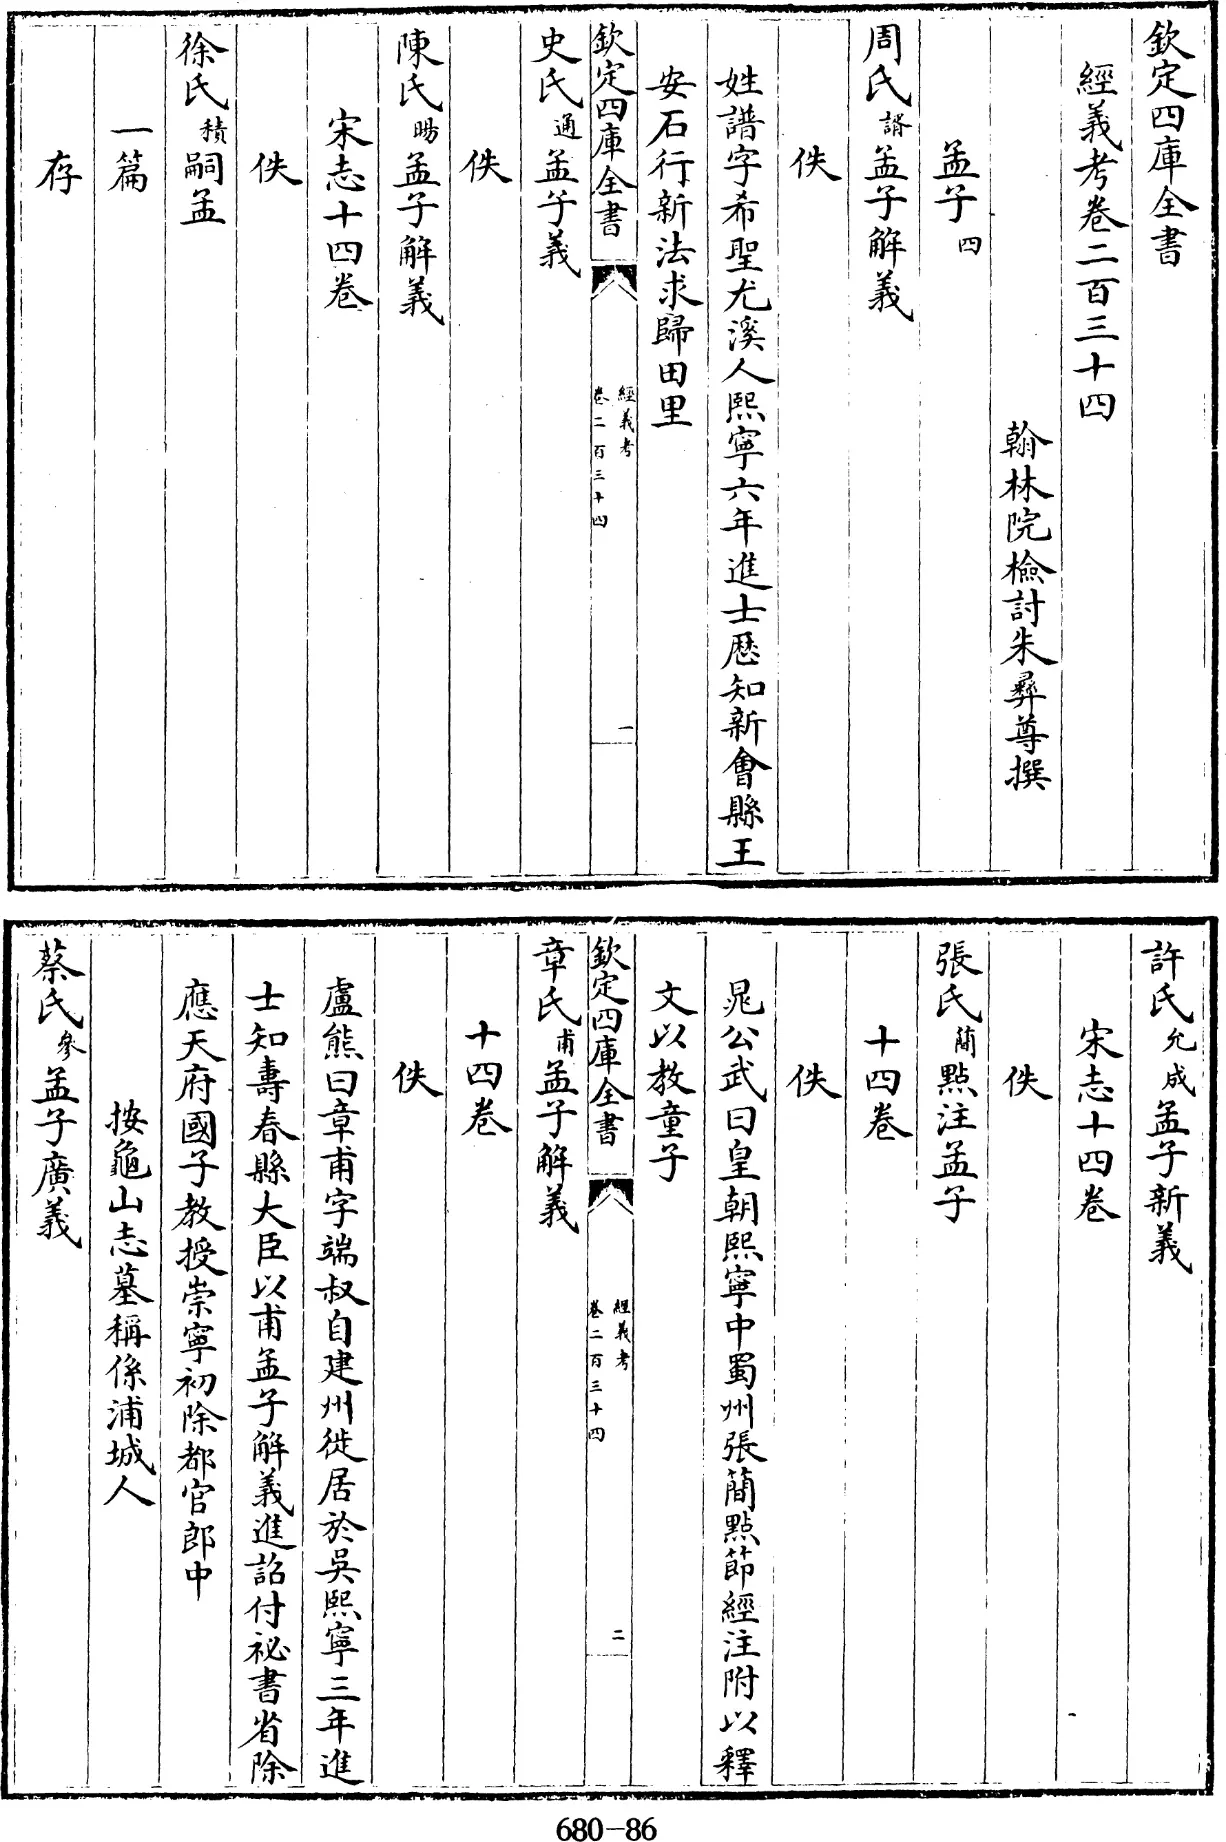 欽定四庫全書
經義考卷二百三十四
翰林院檢討朱彛尊撰
孟子四
周氏諝孟子解義
佚
姓譜字希聖尤溪人熙寧六年進士歷知新會縣王
安石行新法求歸田里
欽定四庫全書
經義考
卷二百三十四
一
史氏通孟子義
佚
陳氏暘孟子解義
宋志十四卷
佚
徐氏積嗣孟
一篇
存
許氏允成孟子新義
宋志十四卷
佚
張氏簡點注孟子
十四卷
佚
晁公武曰皇朝熙寧中蜀州張簡點節經注附以釋
文以教童子
欽定四庫全書
經義考
卷二百三十四
二
章氏甫孟子解義
十四卷
佚
盧熊曰章甫字端叔自建州徙居於吳熙寧三年進
士知壽春縣大臣以甫孟子解義進詔付祕書省除
應天府國子教授崇寧初除都官郎中
按龜山志墓稱係浦城人
蔡氏參孟子廣義
680-86